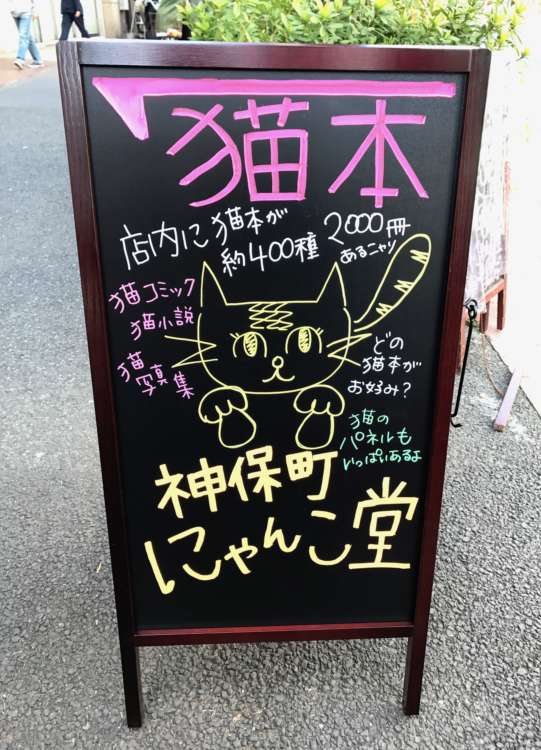 猫本
店内に猫本が
約400種
2000冊
あるニャリ
猫コミック
猫小説
猫
写真集
どの
猫本が
お好み?
猫の
パネルも
いっぱいあるよ
神保町
にゃんこ堂